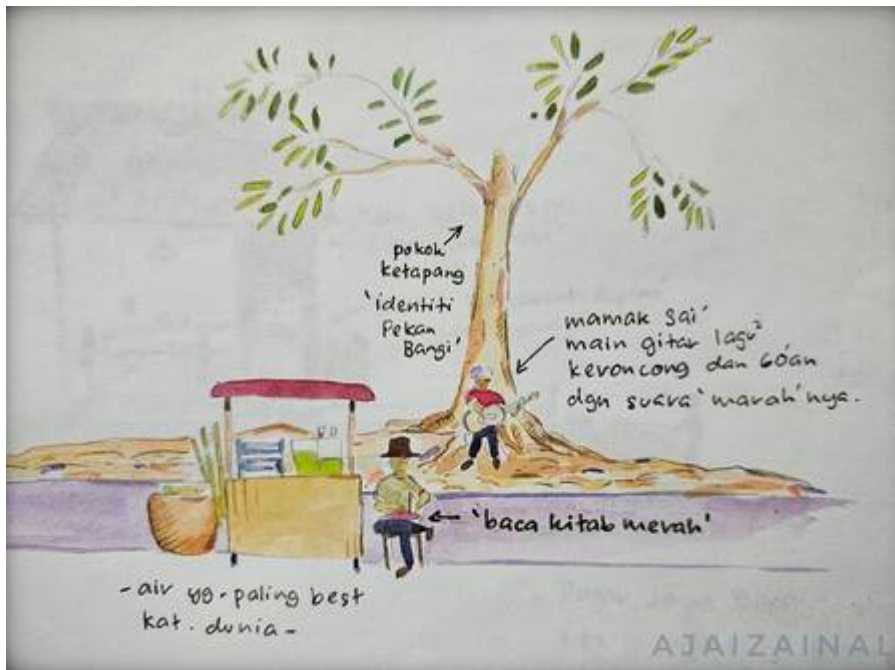 pokok
ketapang
'identiti
Pekan
Bangi'
mamak sai'
main gitar lagu²
keroncong dan 60'an
dgn suara 'marah' nya.
'baca kitab merah'
- air yg. paling best
kat. dunia -
AJAIZAINAL